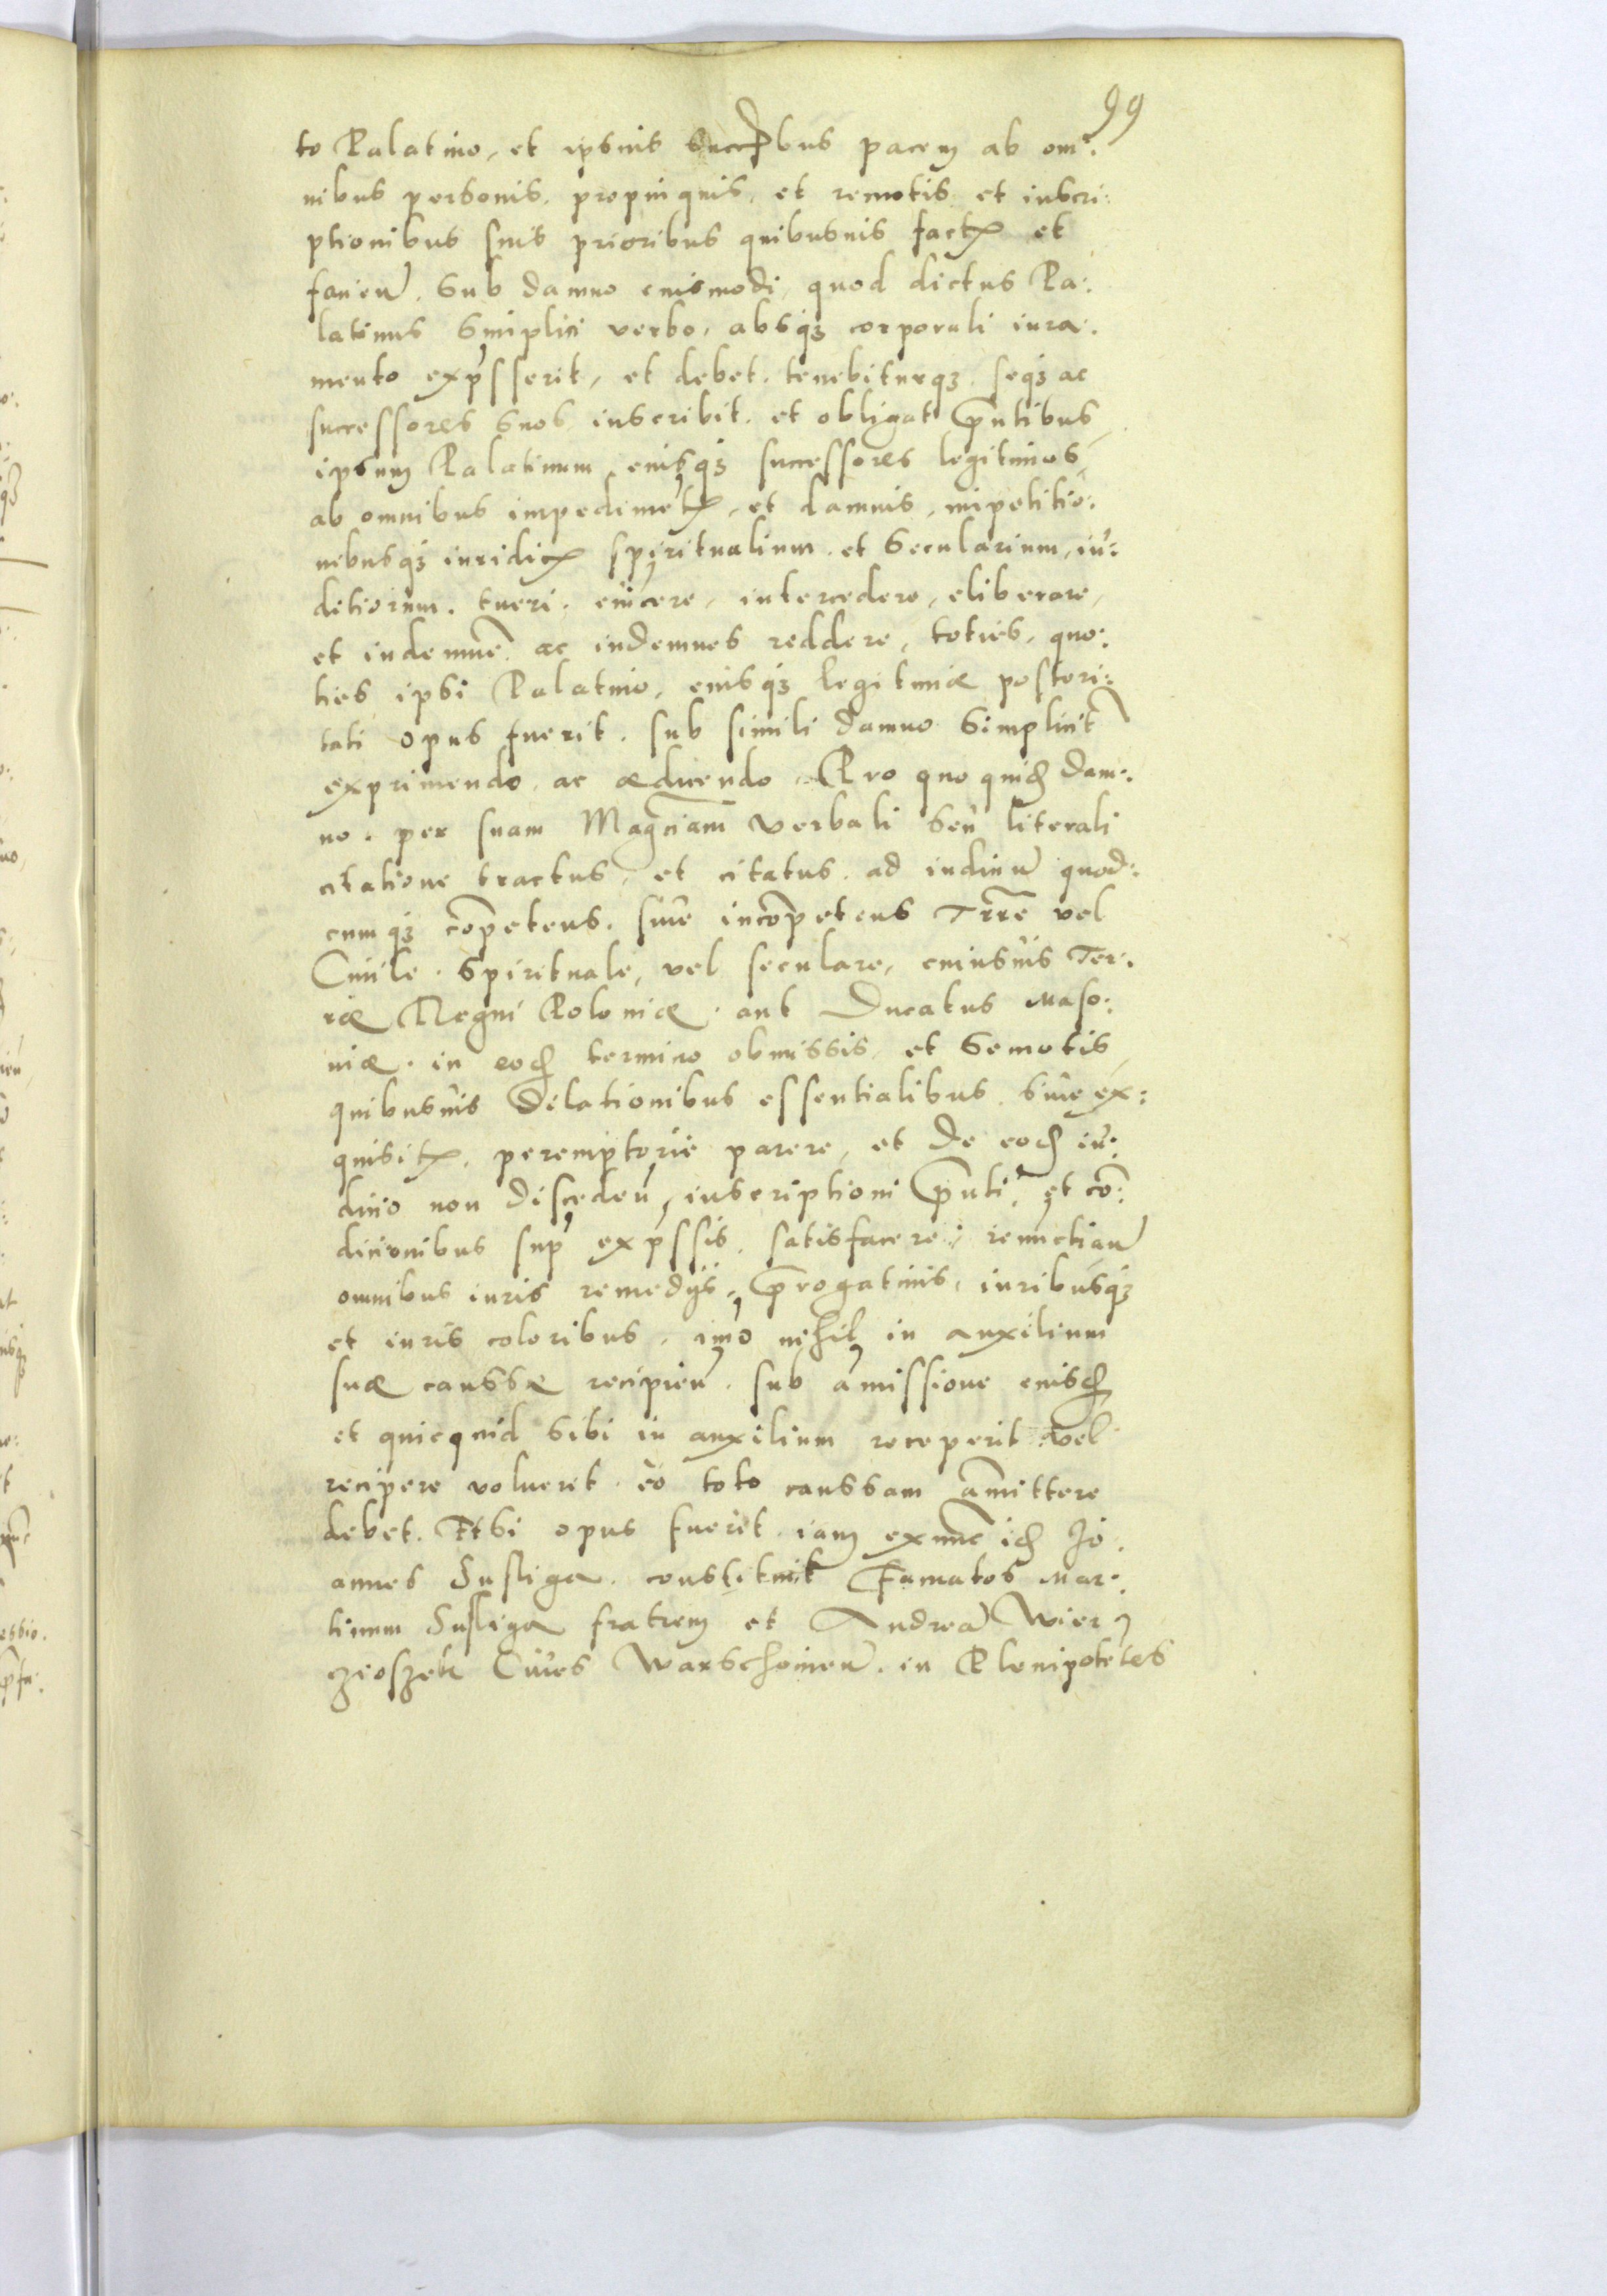 99
to Palatino, et ipsius succrbus pacem ab om:
nibus personis, propinquis, et remotis et inscri:
ptionibus suis prioribus quibusuis fact et
facien̄. Sub damno eiusmodi, quod dictus Pa:
latinus simplici verbo, absq3 corporali iura:
mento exp̄sserit, et debet. tenebiturq3. seq3 ac
successores suos inscribit. et obligat p̄ntibus
ipsum Palatinum eiusq3 successores legitimos,
ab omnibus impedimēt, et damnis, impetitio:
nibusq3 iuridic spiritualium. et secularium, iu:
ditiorum. tueri. euicere, intercedere, eliberare,
et indemnē ac indemnes reddere, toties, quo:
ties ipsi Palatino, eiusq3 legitimæ posteri:
tati opus fuerit. sub simili damno simplicit̄
exprimendo, ac ædicendo. Pro quo quid̄ dam:
no. per suam Magciam̄ verbali seu literali
citatione tractus, et citatus. ad iudiciū quod:
cumq3 cōpetens. siue incōpetens Trrē vel
Ciuile. Spirituale, vel seculare, cuiusuis Ter:
ræ Regni Poloniæ. aut Ducatus Maso:
uiæ. in eod̄ termino obmissis, et semotis
quibusuis dilationibus essentialibus. siue ex:
quisit, peremptorie parere, et de eod̄ iu:
dicio non disceden̄, inscriptioni p̄nti, et cō:
dicionibus sup̄ exp̄ssis. satisfacere, renūctian̄
omnibus iuris remedijs, p̄rogatiuis, iuribusq3
et iuris coloribus. imo nihil in auxilium
suæ caussæ recipien̄. sub amissione eiusd̄
et quicquid sibi in auxilium receperit vel
recipere voluerit. eo toto caussam amittere
debet. Et si opus fuerit. iam exnunc id̄ Jo:
annes Susliga. constituit Famatos Mar:
tinum Susliga fratrem et Andreā Wier
czioszek Ciues Warschouien̄. in Plenipotētes